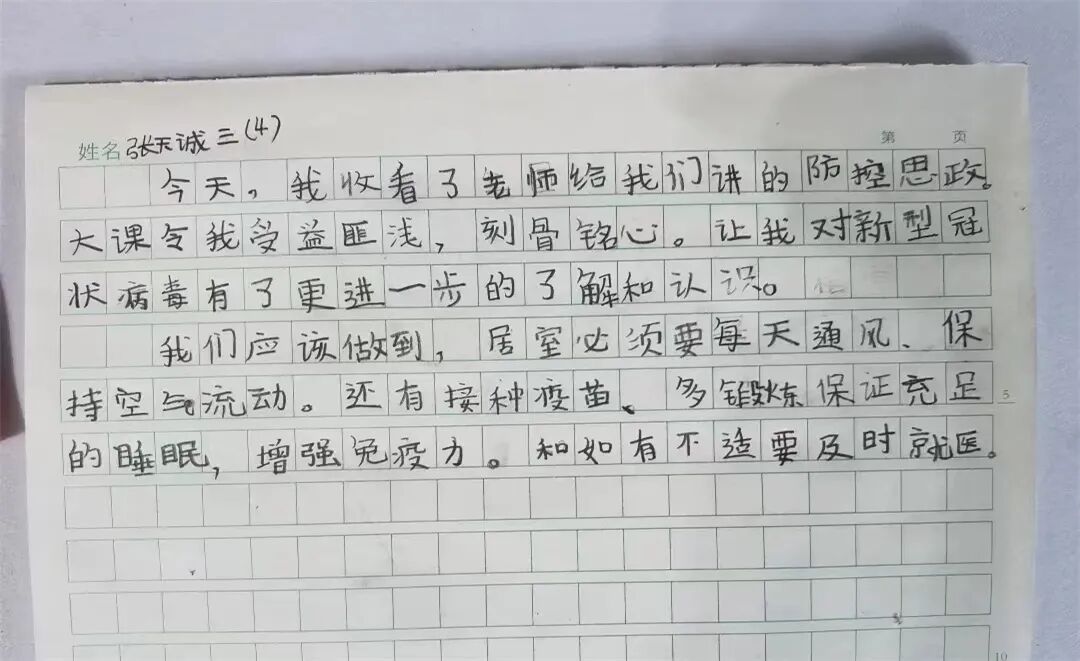 姓名 张天诚 三(4)
第 页
今天，我收看了老师给我们讲的防控思政。
大课令我受益匪浅，刻骨铭心。让我对新型冠
状病毒有了更进一步的了解和认识。
我们应该做到，居室必须要每天通风、保
持空气流动。还有接种疫苗、多锻炼保证充足
5
的睡眠，增强免疫力。和如有不造要及时就医。
10